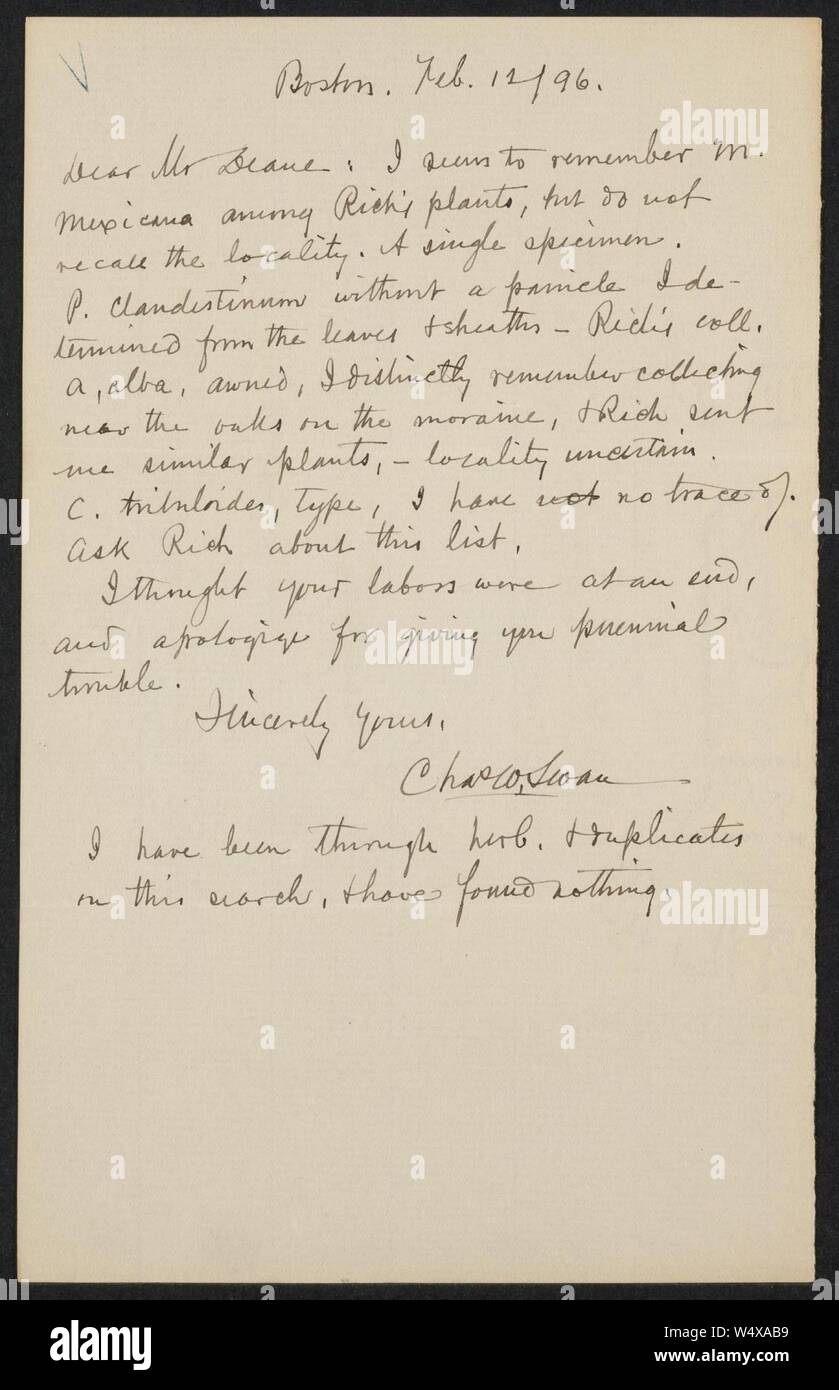 Boston. Feb. 12/96.
Dear Mr Deane: I seem to remember M.
Mexicana among Rich's plants, but do not
recall the locality. A single specimen.
P. clandestinum without a panicle I de-
termined from the leaves & sheaths – Rich's coll.
A. alba, awned, I distinctly remember collecting
near the oaks on the moraine, & Rich sent
me similar plants, – locality uncertain.
C. tribuloides, type, I have not no trace of.
Ask Rich about this list.
I thought your labors were at an end,
and apologize for giving you perennial
trouble.
Sincerely yours,
Chas W. Swan
I have been through herb. & duplicates
on this search, & have found nothing.
alamy
Image ID: W4XAB9
www.alamy.com